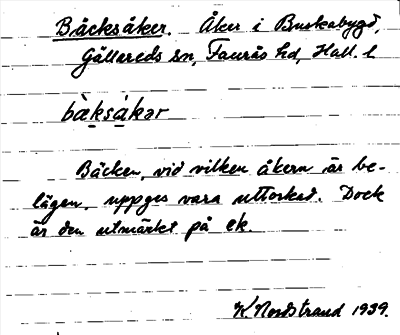 Bäcksåker. Åker i Buskabygd,
Gällareds sn, Faurås hd, Hall. l
bæ̀ksåkər
Bäcken, vid vilken åkern är be-
lägen, uppges vara uttorkad. Dock
är den utmärkt på ek.
K Nordstrand 1939.